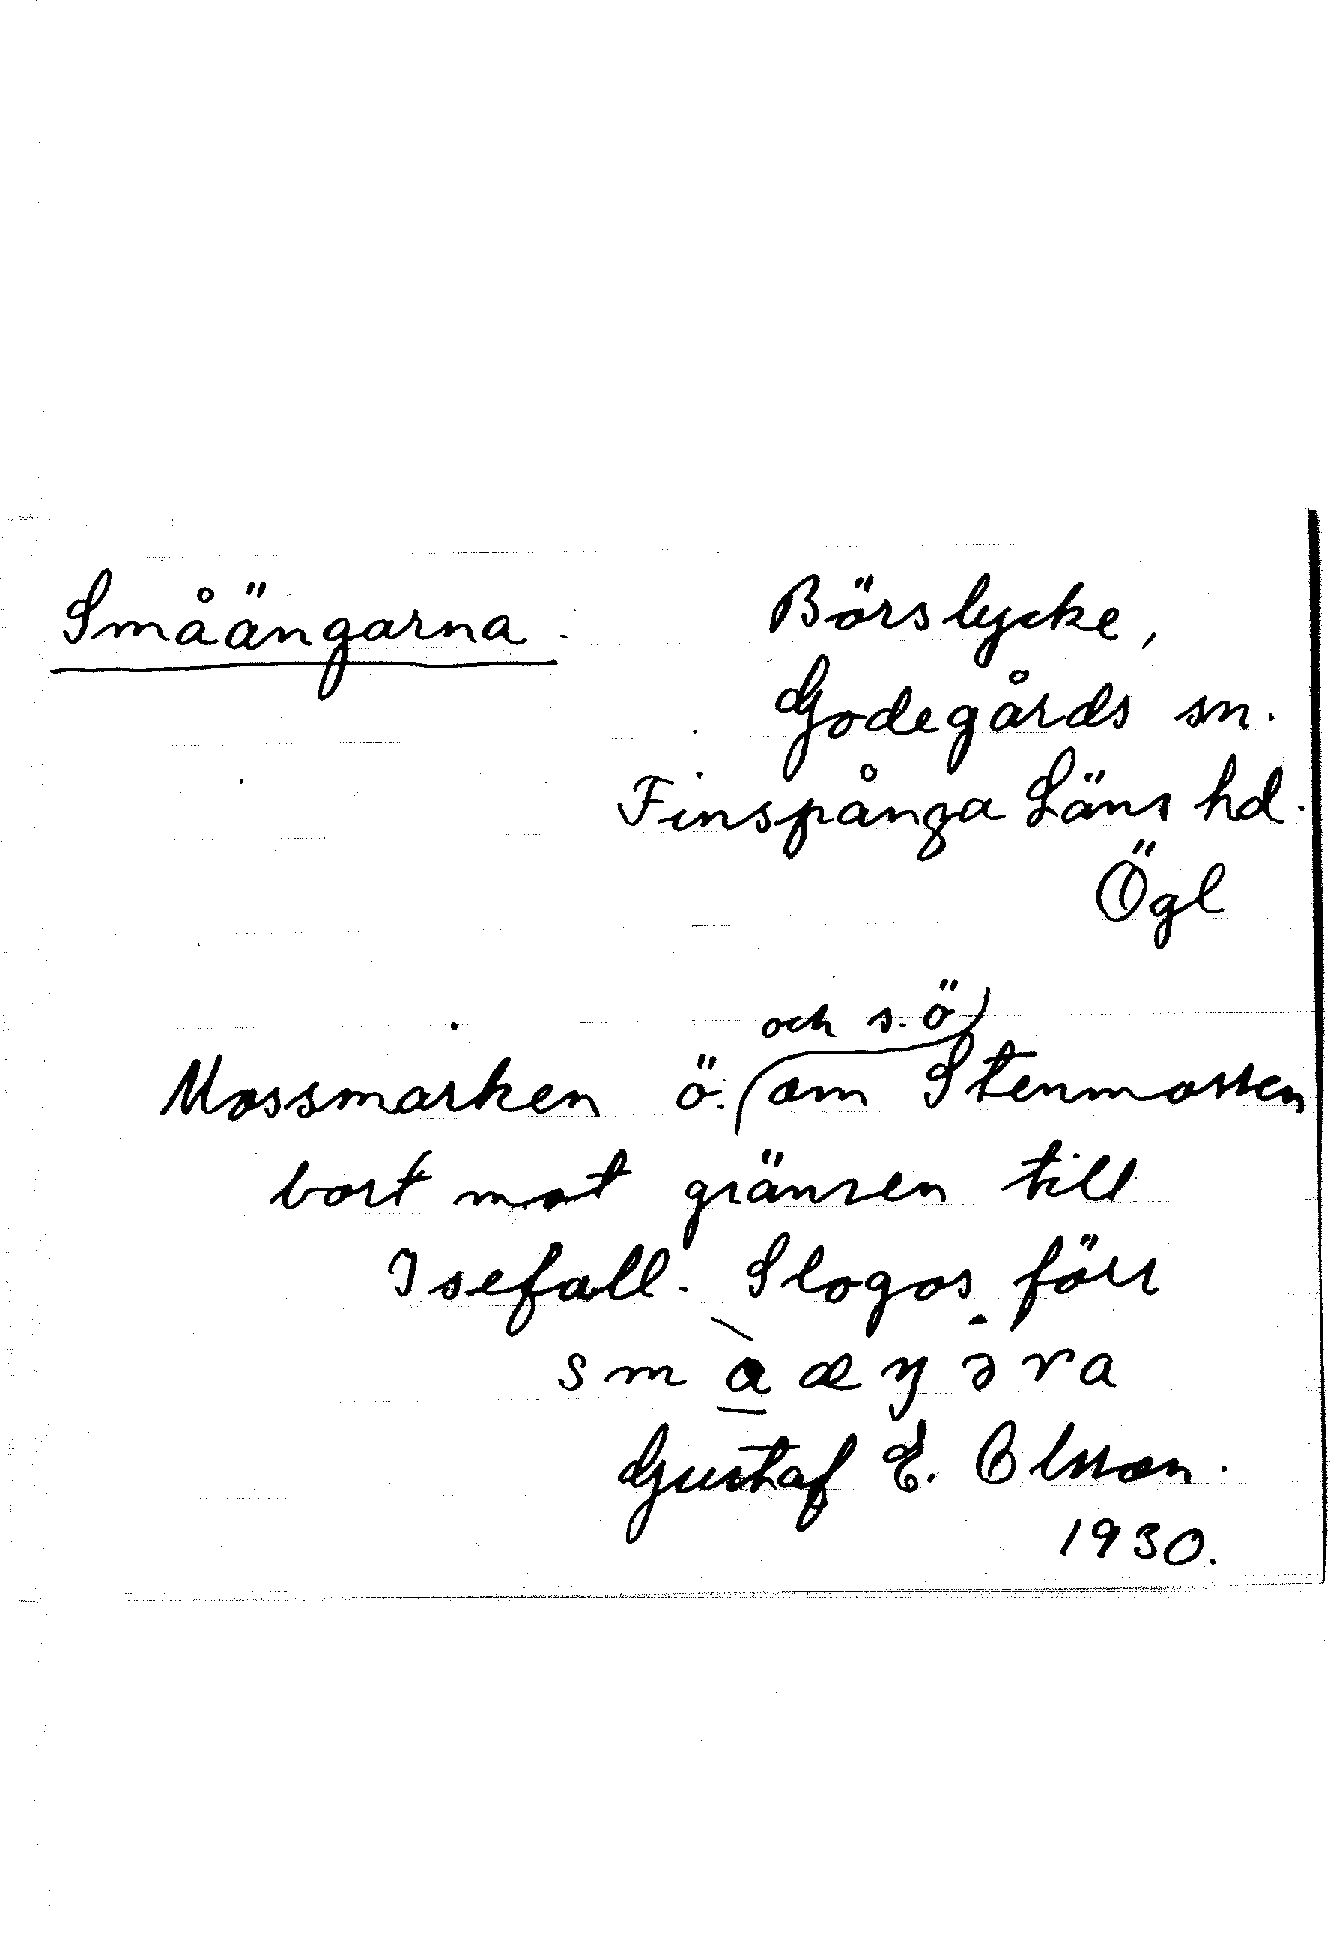 Småängarna.
Börslycke,
Godegårds sn.
Finspånga Läns hd.
Ögl
och s.ö
Mossmarken ö. om Stenmossen
bort mot gränsen till
Isefall. Slogos förr
smaæŋəra
Gustaf E. Olsson.
1930.